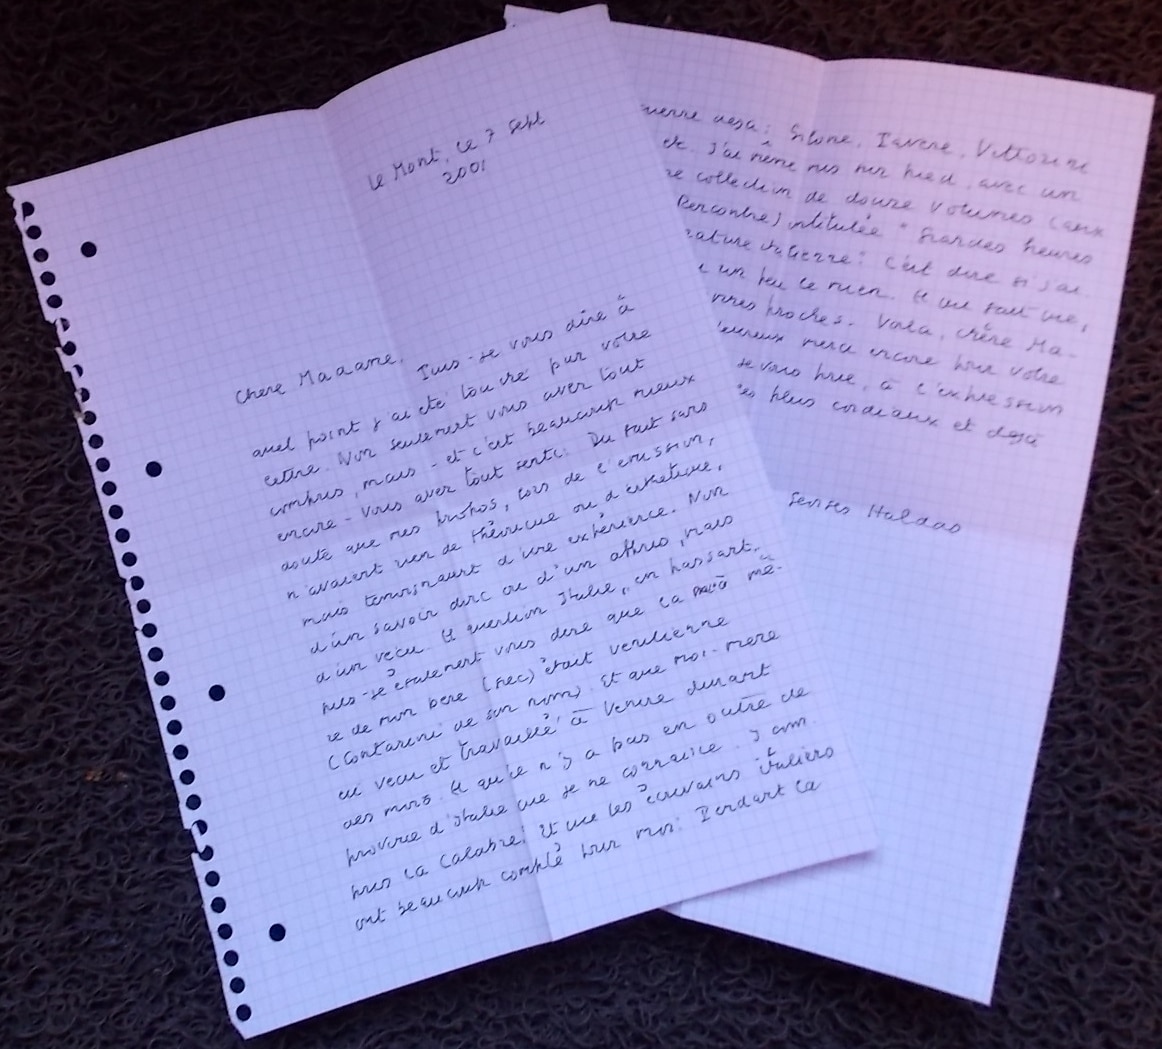 Le Mont, le 7 Sept
2001
Chère Madame,
Puis-je vous dire à
quel point j'ai été touché par votre
lettre. Non seulement vous avez tout
compris, mais - et c'est beaucoup mieux
encore - vous avez tout senti. Du fait sans
doute que mes propos, lors de l'émission,
n'avaient rien de théorique ou d'esthétique,
mais témoignaient d'une expérience. Non
d'un savoir donc ou d'un appris, mais
d'un vécu. Et question Italie, en passant,
puis-je également vous dire que la mè-
re de mon père (grec) était vénitienne
(Contarini de son nom). Et que moi-même
ai vécu et travaillé à Venise durant
des mois. Et qu'il n'y a pas en outre de
province d'Italie que je ne connaisse. Y com-
pris la Calabre! Et que les écrivains italiens
ont beaucoup compté pour moi. Pendant la
guerre déjà: Silone, Pavese, Vittorini
etc. J'ai même mis sur pied, avec un
collection de douze volumes (aux
Rencontre) intitulée "Grandes heures
italienne: c'est dire si j'ai
un peu le mien. Et qui fait que,
proches. Voilà, chère Ma-
merci encore pour votre
je vous prie, à l'expression
plus cordiaux et déjà
Georges Haldas